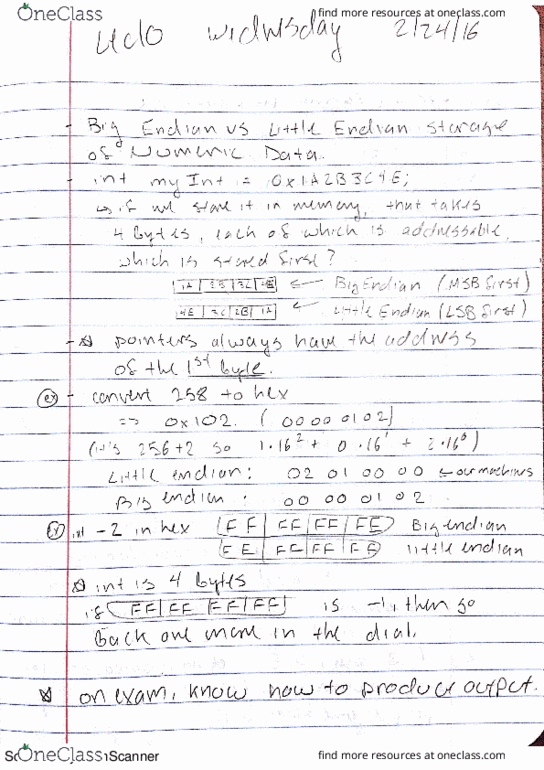 OneClass
find more resources at oneclass.com
wednesday 2/24/16
- Big Endian vs Little Endian storage
of Numeric Data.
- int myInt = 0x1A2B3C4E;
↳ if we store it in memory, that takes
4 bytes, each of which is addressable.
which is stored first?
1A | 2B | 3C | 4E ← Big Endian (MSB first)
4E | 3C | 2B | 1A ← Little Endian (LSB first)
- pointers always have the address
of the 1st byte.
(ex) - convert 258 to hex
=> 0x102. (00000102)
(it's 256+2 so 1·16² + 0·16¹ + 2·16⁰)
Little endian: 02 01 00 00 ← our machines
Big endian: 00 00 01 02
(ex) int -2 in hex FF | FF | FF | FE Big endian
FE | FF | FF | FF little endian
int is 4 bytes
if FF | FF FF | FF is -1, then go
Back one more in the dial.
on exam, know how to produce output.
OneClass
Scanner
find more resources at oneclass.com